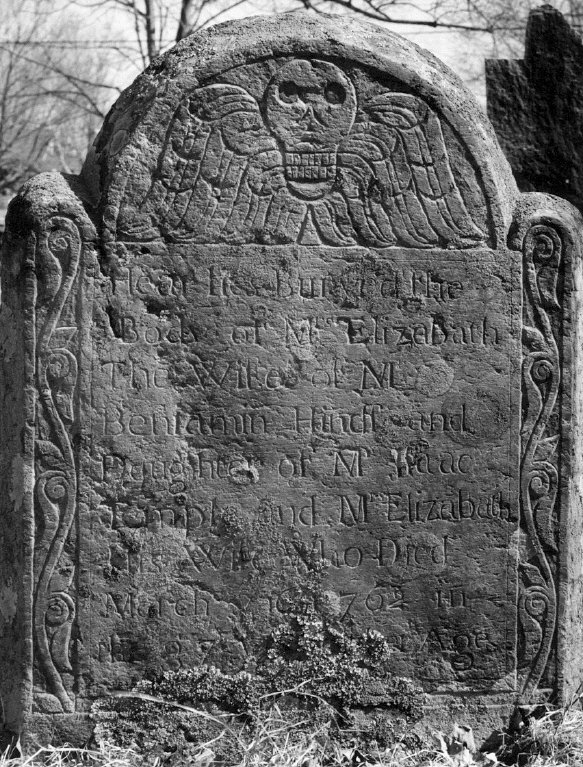 Hear lies Buryed the
Body of Mrs Elizabath
The Wife of Mr
Benjamin Hinds and
Daughter of Mr Isaac
Temple and Mrs Elizabath
His Wife Who Died
March 1762 in
the 37 Age